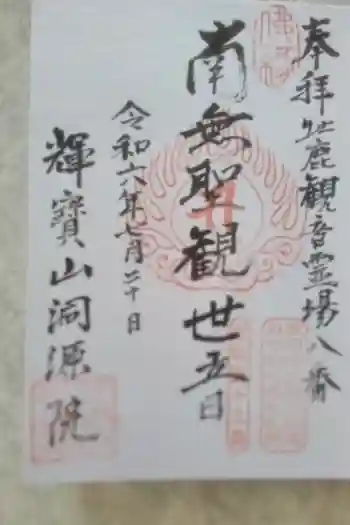 奉拝 牡鹿観音霊場八番
南無聖観世五日
令和六年七月二十日
輝寶山洞源院